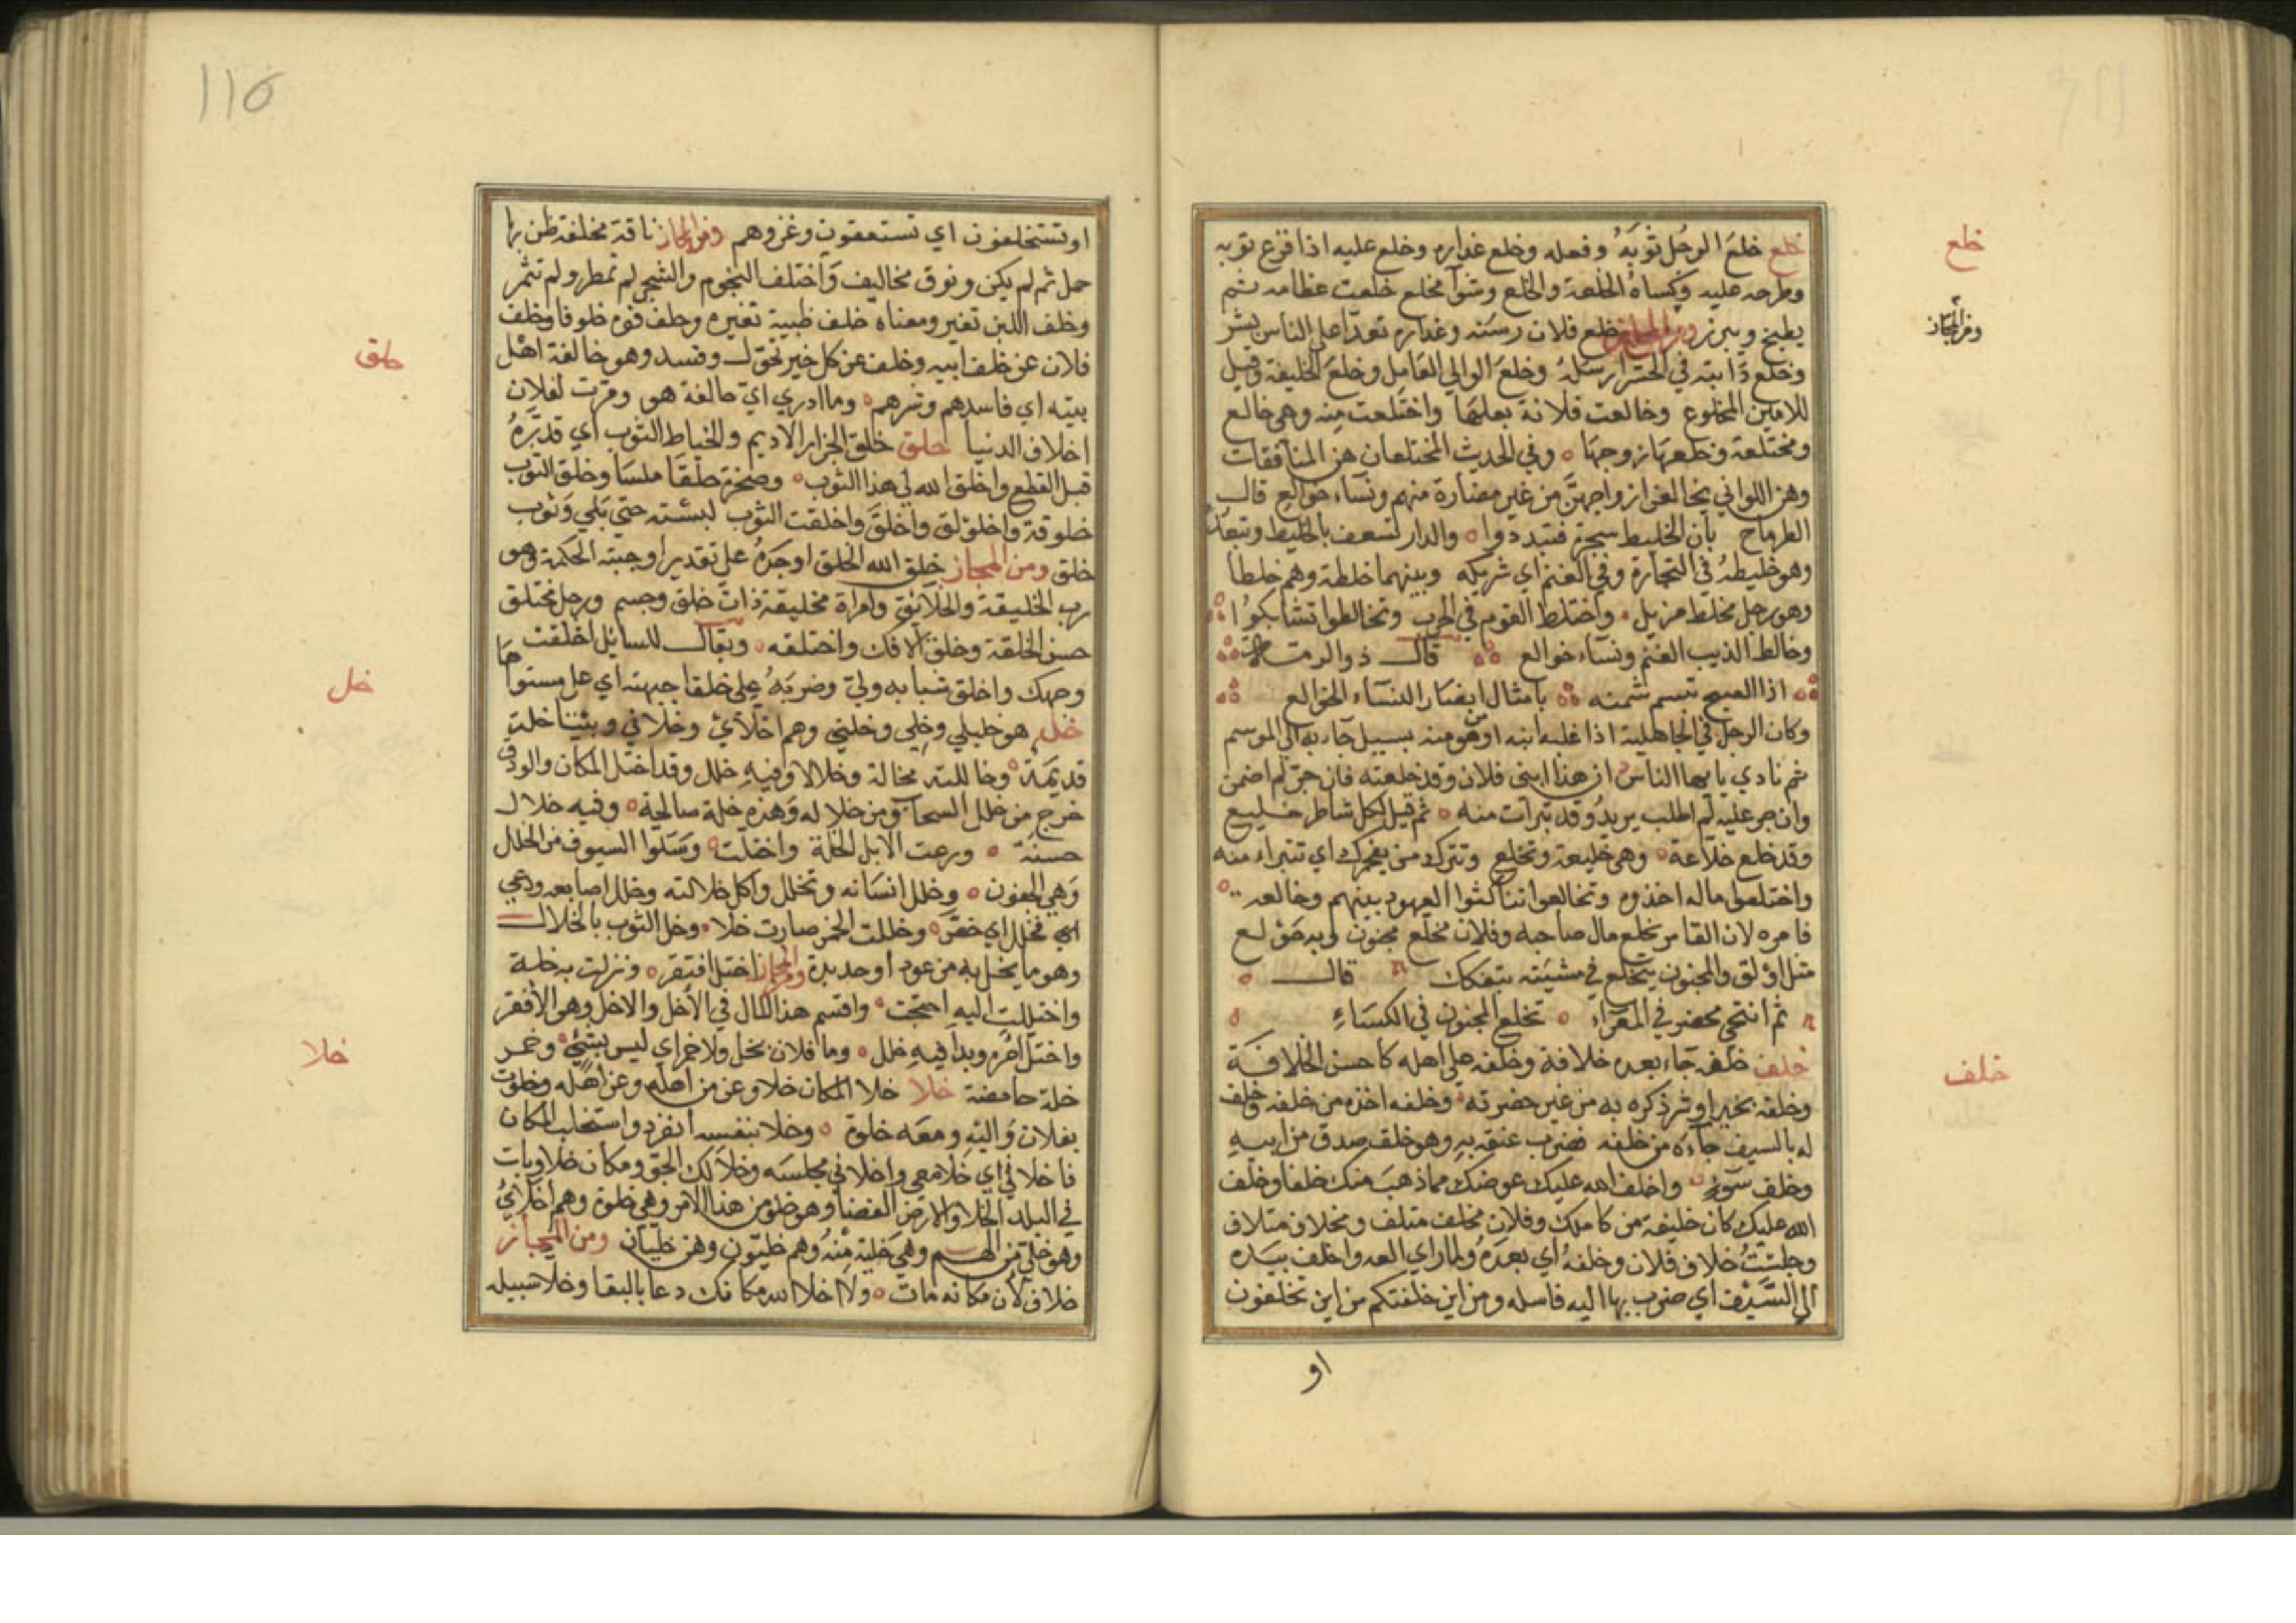 خلع
ومن المجاز
خلف
خلع خلعَ الرجُل ثوبَهُ وفعله وخلع عذاره وخلع عليه اذا نزع ثوبه
وطرحه عليه وكساهُ الخلعة والخلع وشوآ مخلع خلعت عظامه ثم
يطبخ ويبرز ومن المجاز خلع فلان رسنه وعذاره تعدّا على الناس بشر
وخلع دَابته في الحشر ارسلهُ وخلعَ الوالي العَامِل وخلعَ الخليفة وقيل
للامين المخلوع وخالعت فلانة بعلهَا واختلعت منه وهي خالع
ومختلعة وخلعهَا زوجهَا ٥ وفي الحديث المختلعات هن المنافقات
وهن اللواتي يخالعن ازواجهنَّ من غير مضارة منهم ونسآء خوالع قال
الطرماح بان الخليط سجرة فتبددوا ٥ والدار تسعف بالخليط وتبعد
وهو خليطهُ في التجارة وفي الغنم اي شريكه وبينهما خلطة وهم خلطا
وهو رجل مخلط مزيل واختلط القوم في الحرب وتخالطوا تشابكوُا
وخالط الذيب الغنم ونسآء خوالع قال ذو الرمة
اذا الصبح تبسم شمنه بامثال ابصار النسآء الخوالع
وكان الرجل في الجاهلية اذا غلبه ابنه او من هو منه بسبيل جآء به الى الموسم
ثم نادي يا يها الناس ان هذا ابنى فلان وقد خلعته فان جرّ لم اضمن
وان جر عليه لم اطلب يريدُ وقد تبرات منه ٥ ثم قيل لكل شاطر خليع
وقد خلع خلاعة وهي خليعة وتخلع وتترك من يفجرك اي تتبراء منه
واختلعوا ماله اخذوه وتخالعوا تناكثوا العهود بينهم وخالعه
قامره لان القامر يخلع مال صاحبه وفلان مخلّع مجنون وبه خولع
مثل اولق والمجنون يتخلع في مشيته يتفكك قال
ثم انتحى محضر في المعزآء ٥ تخلع المجنون في الكسَاءِ
خلف خلفه جآء بعده خلافة وخلفه على اهله كاحسن الخلافة
وخلفه بخير او شر ذكره به من غير حضرته وخلفه اخذه من خلفه وخلف
له بالسيف جآءه من خلفه فضرب عنقه به وهو خلف صدق من ابيهِ
وخلف سَوءٍ واخلف الله عليك عوضك مما ذهبَ منك خلفا وخلف
الله عليك كان خليفة من كاملك وفلان مخلف متلف ومخلاف متلاف
وجلسْتُ خلاف فلان وخلفهُ اي بعدَهُ ولما راي العدو اخلف بيَده
الي السَّيْف اي ضرب بها اليه فاسله ومن اين خلفتكم من اين تخلفون
او
116
خلق
خل
خلا
او تستخلفون اي تستعقون وغزوهم ومن المجاز ناقة مخلفة ظن بها
حمل ثم لم يكن ونوق مخاليف وَاختلف النجوم والشجر لم تمطر ولم تثمر
وخلف اللبن تغير ومعناه خلف ظبية تغيره وخلف فوه خلوفا وخلف
فلان عن خلف ابيه وخلف عن كل خير تحوّل وفسد وهو خالفة اهل
بيته اي فاسدهم وشرهم ٥ وما ادري اي خالفة هو ودرت لفلان
اخلاف الدنيا خلق خلق الخراز الاديم والخياط الثوب اي قدرَهُ
قبل القطع واخلق الله لي هذا الثوب ٥ وصخرة خلقَا ملسَا وخلق الثوب
خلوقة واخلولق واخلقَ واخلقت الثوب لبسته حتي بَلي وَثوب
خلق ومن المجاز خلق الله الخلق اوجدَهُ على تقدير اوجبته الحكمة وهو
رب الخليقة والخلائق وامراة مخليقة ذات خلق وجسم ورجل مختلق
حسن الخلقة وخلق الافك واختلقه ٥ ويقال للسايل اخلقت
وجهك واخلق شبابه ولي وضربَهُ على خلقا جبهته اي على مستواها
خل هو خليلي وخِلى وخلتي وهم اخلّآئي وخلاني وبيننا خلة
قديمَة وخاللته مخالة وخلالا وفيهِ خلل وقد اختل المكان والودق
خرج من خلل السحاب ومن خلاله وهذه خلة صالحة ٥ وفيه خلال
حسنَة ٥ ورعت الابل الخلة واختلت وَسَلوا السيوف من الخلل
وَهي الجفون ٥ وخلل اسنانه وتخلل واكل خلالته وخلل اصابعه ودعي
فخلل اي خصّ ٥ وخللت الخمر صارت خلا ٥ وخل الثوب بالخلال
وهو ما يخل به من عود او حديدة ومن المجاز اختل افتقر ٥ ونزلت به خلة
واختللت اليه احتجت ٥ واقسم هذا المال في الأخل والاخل وهو الافقر
واختل امُره وبدا فيهِ خلل ٥ وما فلان بخل ولا خمر اي ليس بشئ وخمر
خلة حامضة خلا خلا المكان خلا وعن من اهله وعن اهله وخلوت
بفلان وَاليه ومعَه خلوة ٥ وخلا بنفسه انفرد واستخليت المكان
فاخلا في اي خَلا معي واخلا في مجلسَه وخلا لك الجوّ ومكان خلا وبات
في البلد الخلا والارض الفضا وهو خلو من هذا الامر وهي خلوة وهم اخلآئي
وهو خلي من الهم وهي خلية مِنْهُ وهم خليّون وهن خليات ومن المجاز
خلا فلان مكانه مات ٥ ولا اخلا الله مكانك دعا بالبقا وخلا سبيله